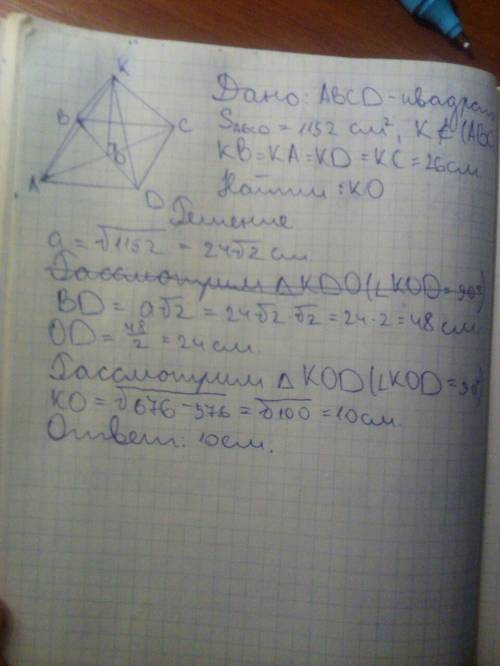 K
B
C
O
A
D
Дано: ABCD - квадрат
S ABCD = 1152 см², K ∉ (ABC
KB = KA = KD = KC = 26 см.
Найти: KO
Решение
a = √1152 = 24√2 см
Рассмотрим △KDO (∠KOD = 90°)
BD = a√2 = 24√2 · √2 = 24 · 2 = 48 см
OD = 48/2 = 24 см.
Рассмотрим △KOD (∠KOD = 90°)
KO = √676 - 576 = √100 = 10 см.
Ответ: 10 см.